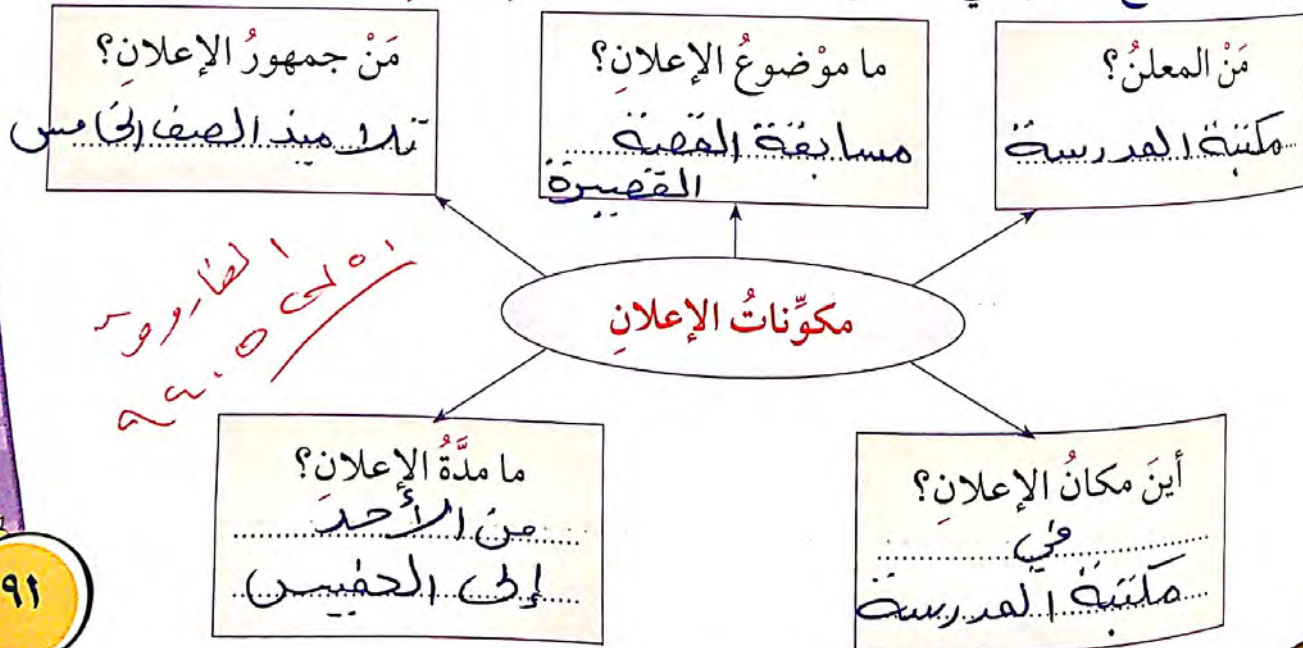 مَنْ المعلنُ؟
مكتبة المدرسة
ما موْضوعُ الإعلانِ؟
مسابقة القصة
القصيرة
مَنْ جمهورُ الإعلانِ؟
تلاميذ الصف الخامس
مكوِّناتُ الإعلانِ
أينَ مكانُ الإعلانِ؟
في
مكتبة المدرسة
ما مدَّةُ الإعلانِ؟
من الأحد
إلى الخميس
٩١